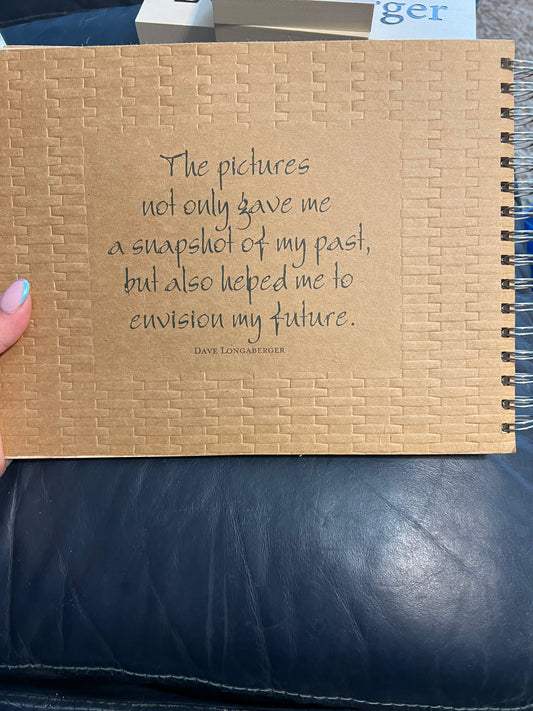 ger
The pictures
not only gave me
a snapshot of my past,
but also heped me to
envision my future.
DAVE LONGABERGER